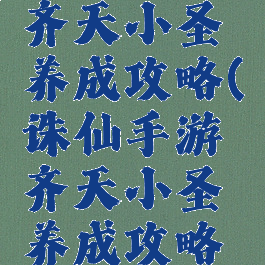 齐天小圣
养成攻略(
诛仙手游
齐天小圣
养成攻略